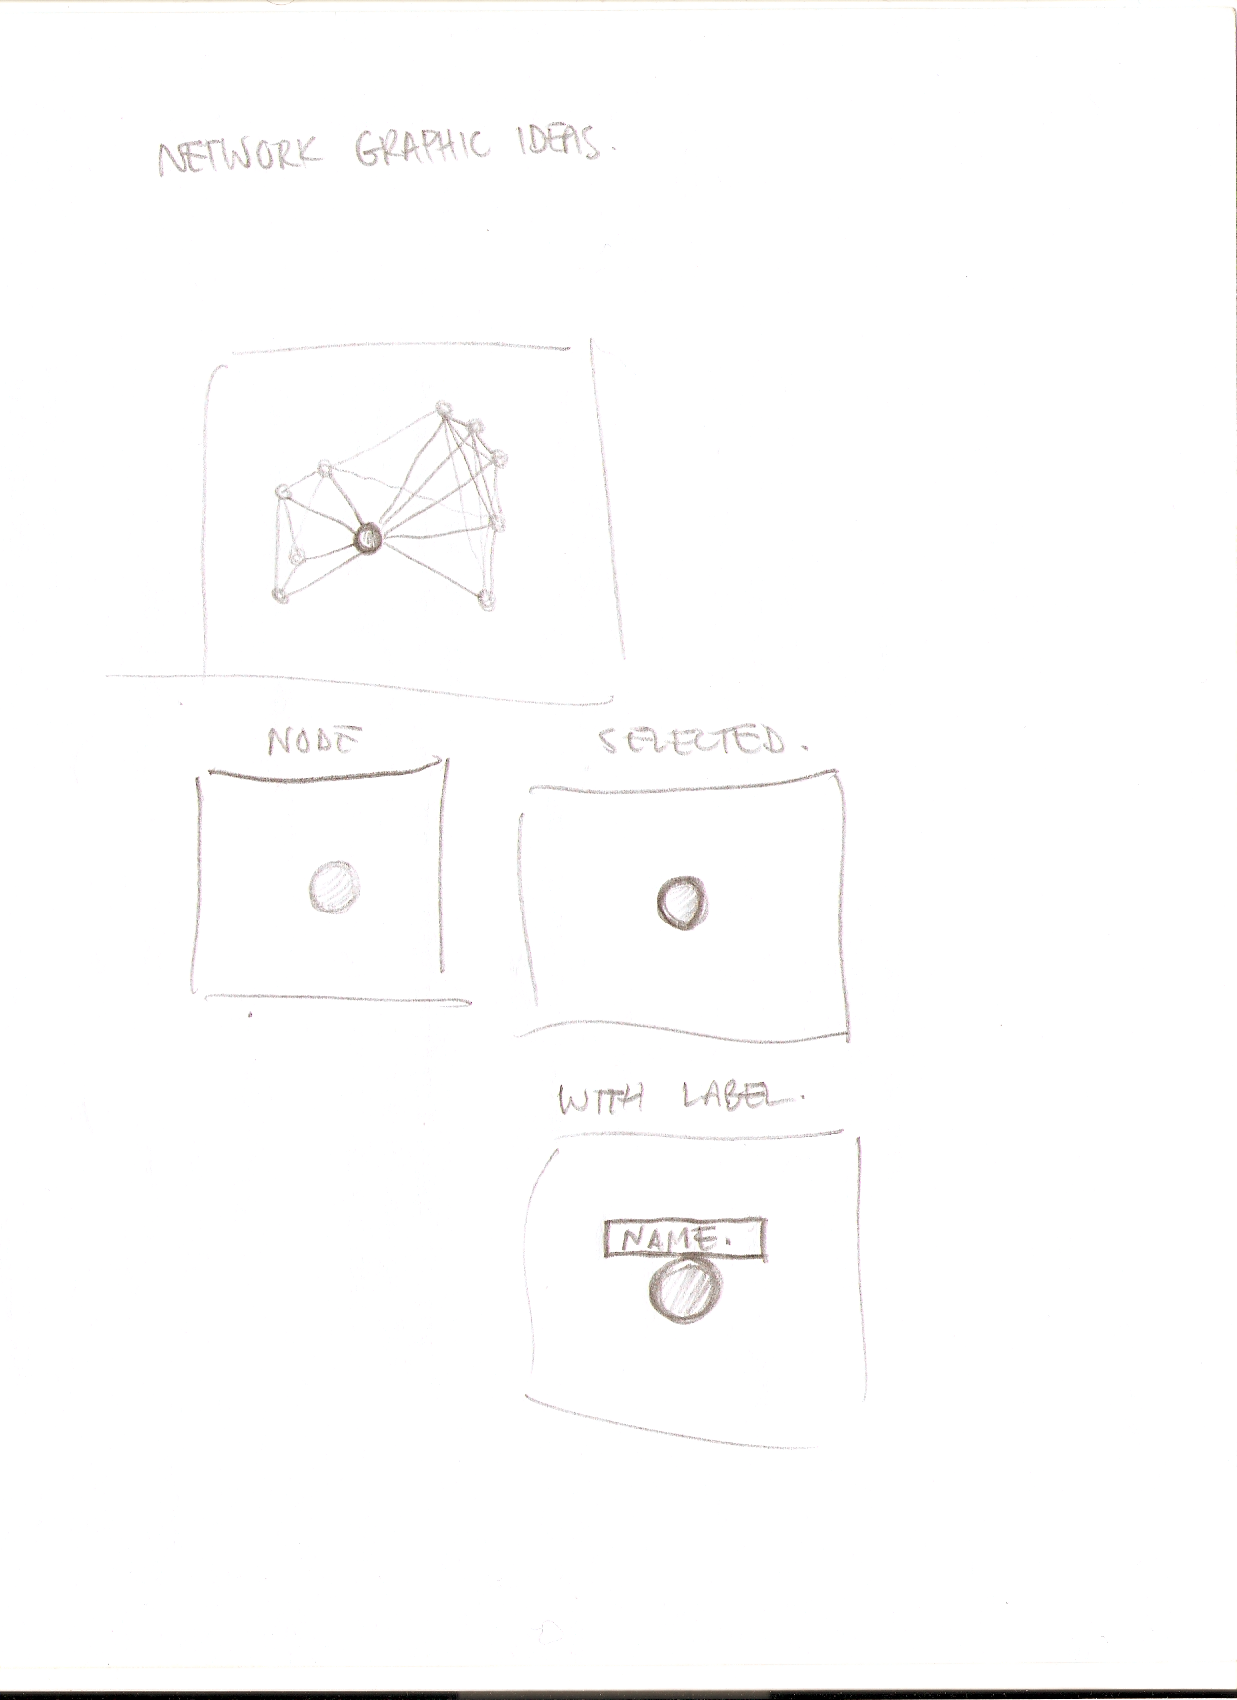 NETWORK GRAPHIC IDEAS.
NODE
SELECTED.
WITH LABEL.
NAME.